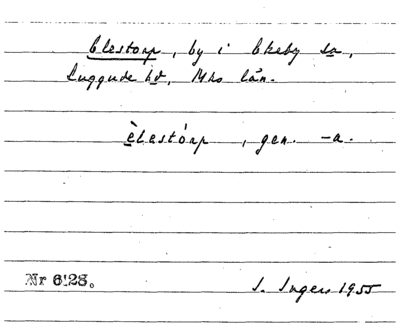 Elestorp, by i Ekeby sn,
Luggude hd, Mhs län.
èlestórp, gen. -a.
Nr 6128.
I. Ingers 1955